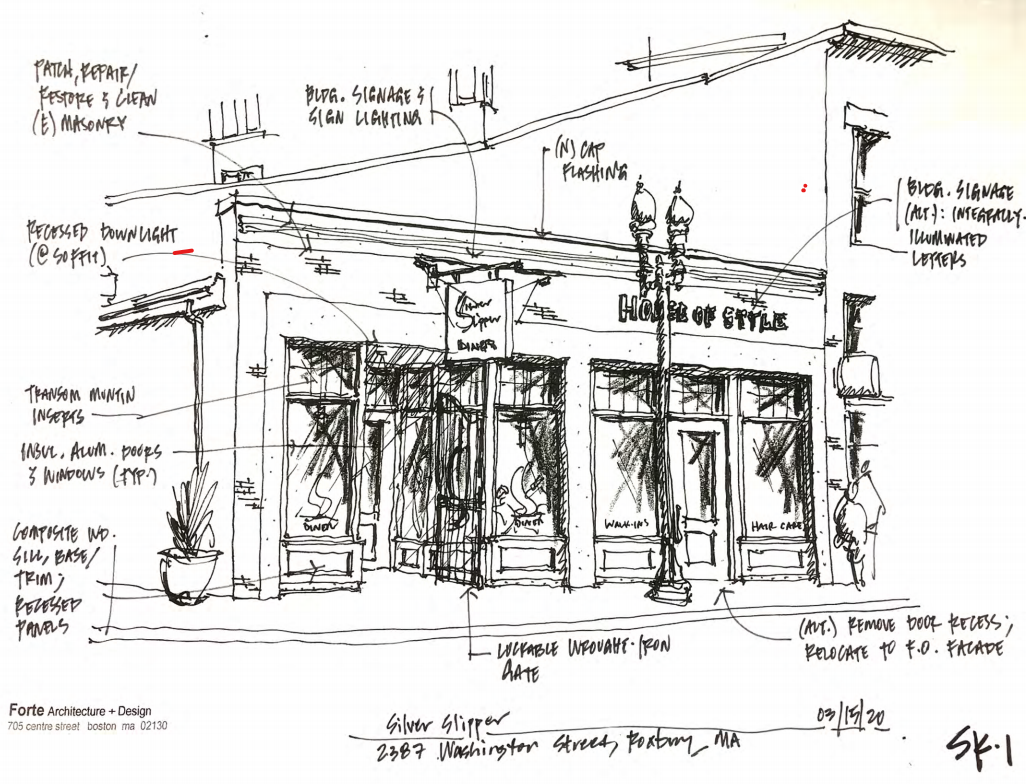 PATCH, REPAIR/
RESTORE & CLEAN
(E) MASONRY
BLDG. SIGNAGE &
SIGN LIGHTING
(N) CAP
FLASHING
BLDG. SIGNAGE
(ALT.): INTEGRALLY-
ILLUMINATED
LETTERS
RECESSED DOWNLIGHT
(@ SOFFIT)
Silver
Slipper
DINER
HOUSE OF STYLE
TRANSOM MUNTIN
INSERTS
INSUL. ALUM. DOORS
& WINDOWS (TYP.)
DINER
DINER
WALK-INS
HAIR CARE
COMPOSITE WD.
SILL, BASE/
TRIM;
RECESSED
PANELS
LOCKABLE WROUGHT-IRON
GATE
(ALT.) REMOVE DOOR RECESS;
RELOCATE TO F.O. FACADE
Forte Architecture + Design
705 centre street boston ma 02130
Silver Slipper
2387 Washington Street, Roxbury, MA
03/15/20
SK-1